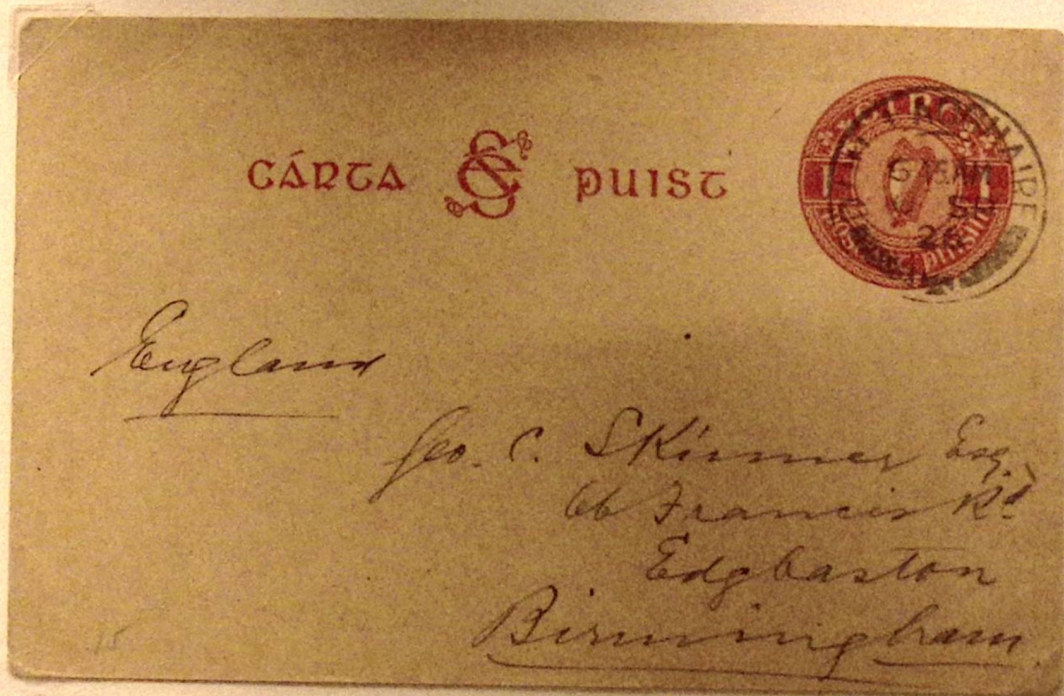 CÁRTA SÉ PUIST
1 1
6 15 AM
England
Geo. C. Skinner Esq.
66 Francis Rd
Edgbaston
Birmingham.
15